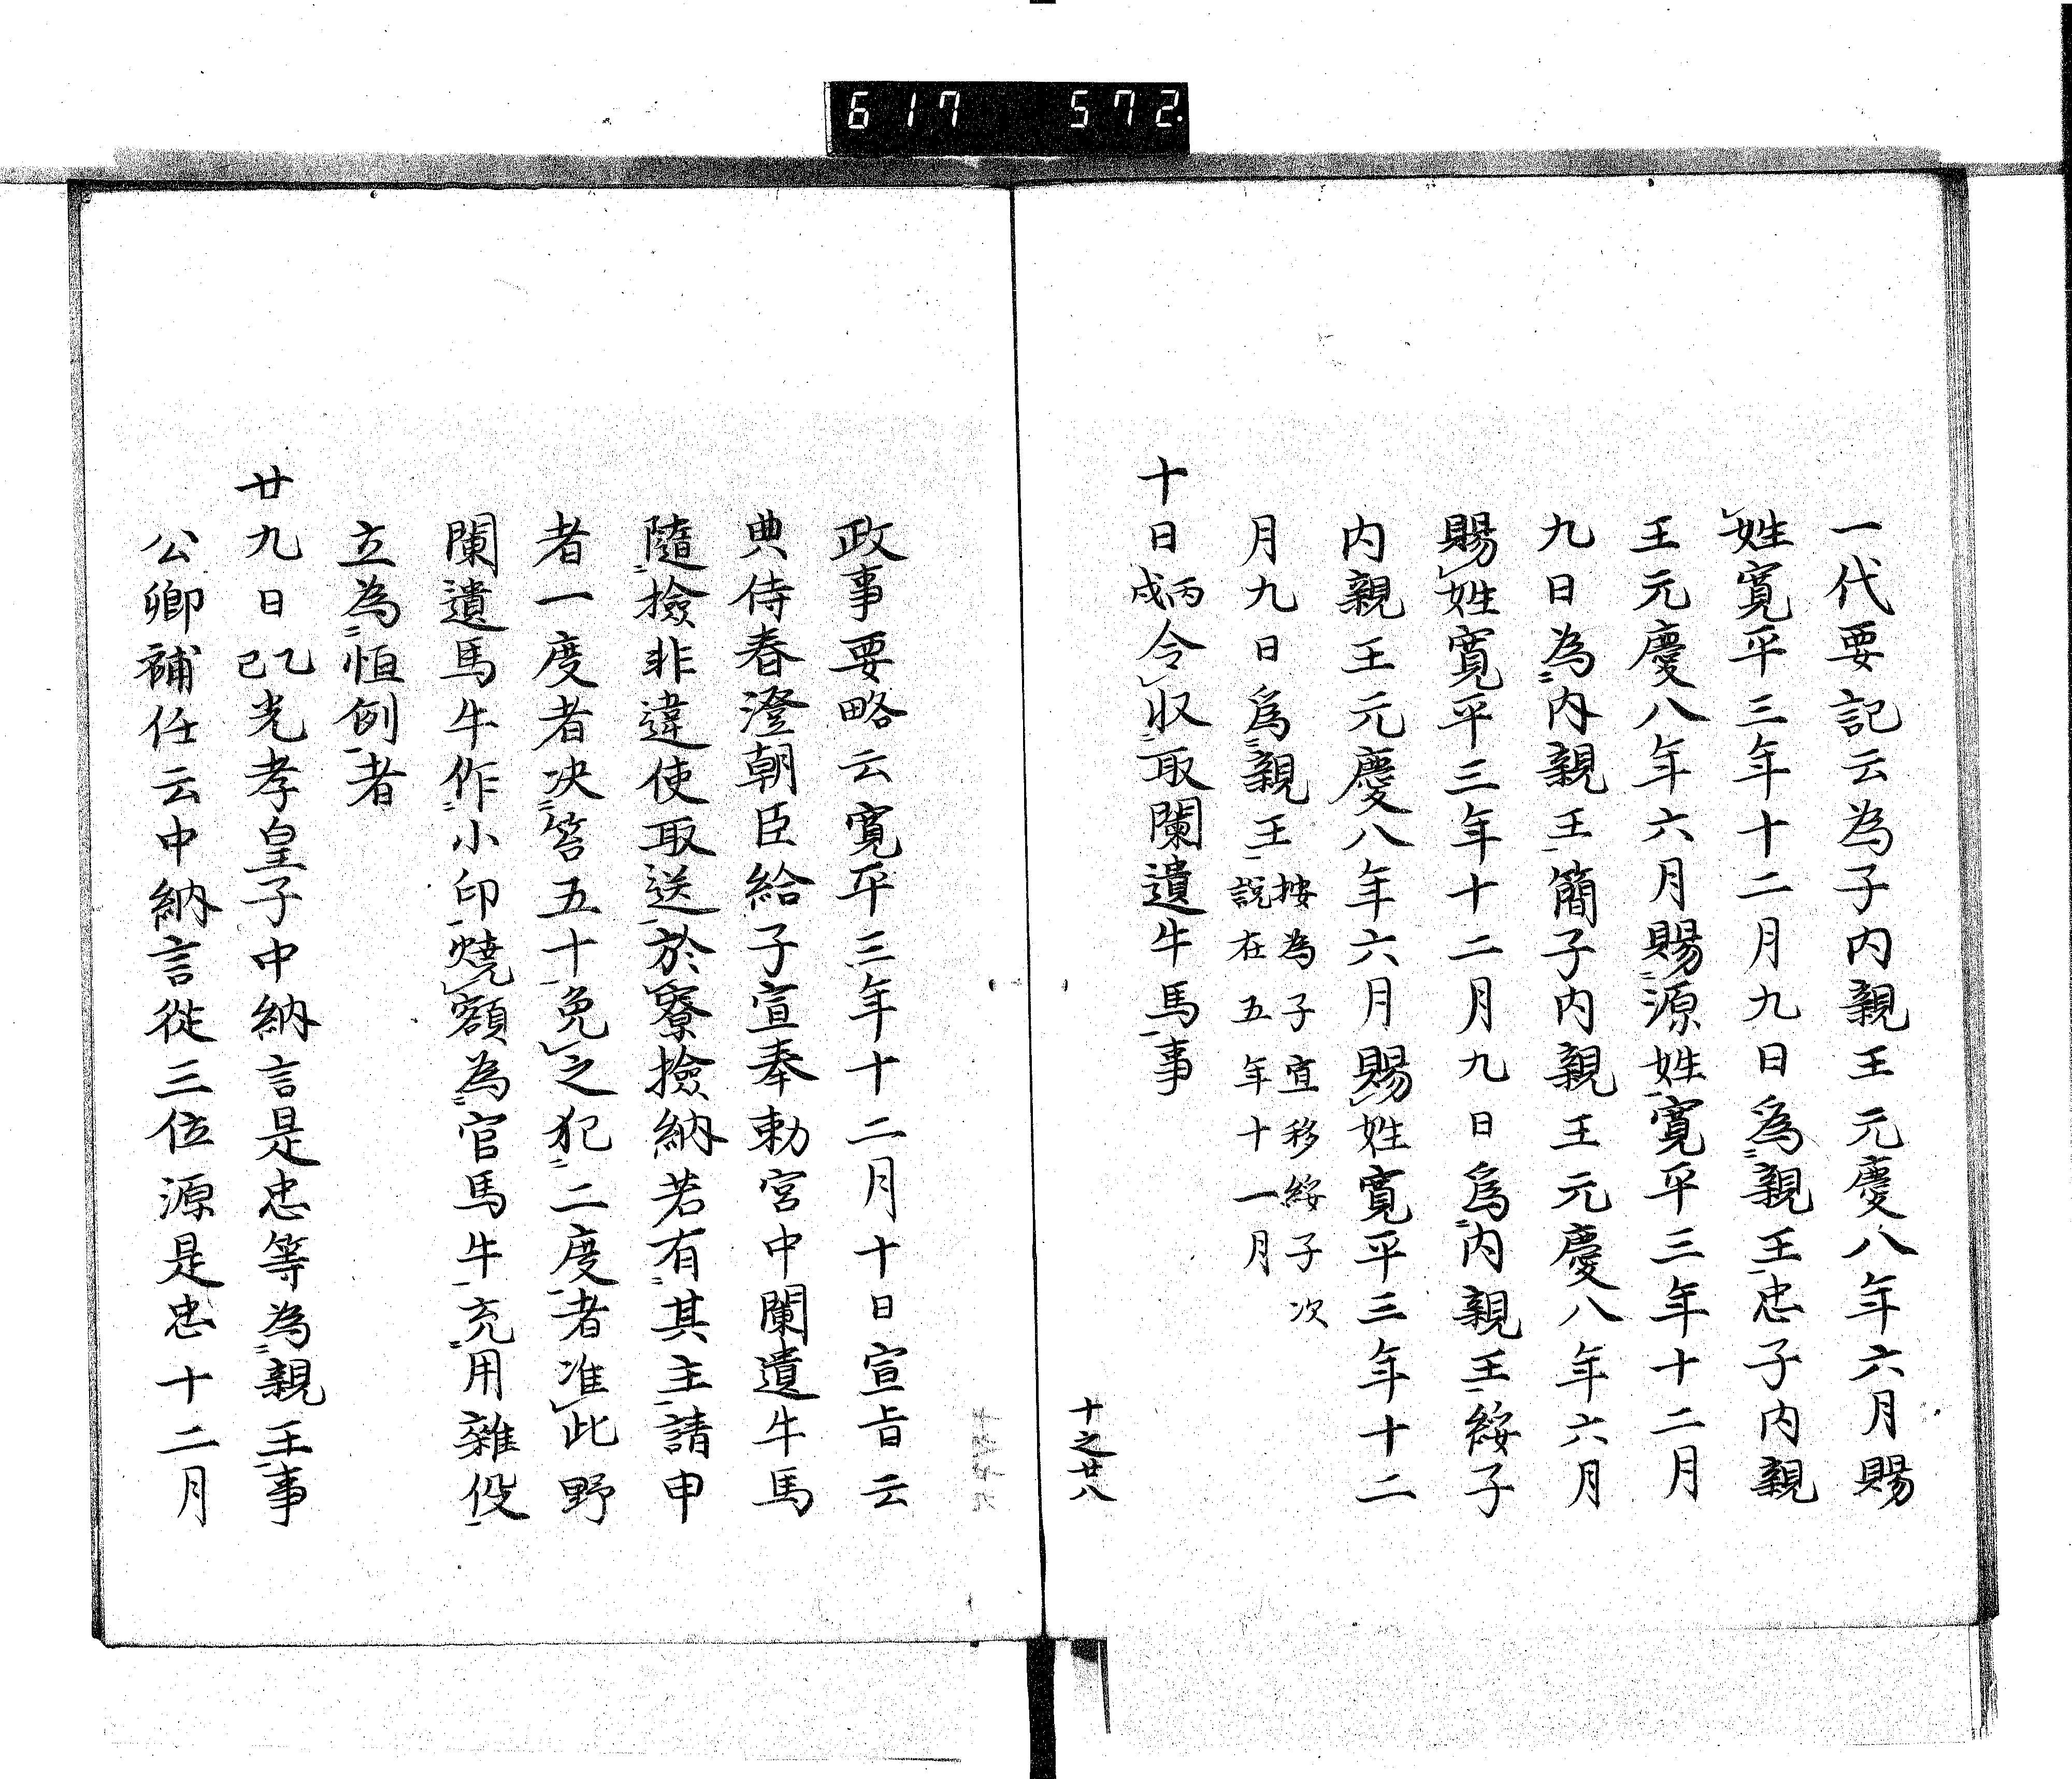 617 572.
一代要記云為子内親王元慶八年六月賜
姓寛平三年十二月九日為親王忠子内親
王元慶八年六月賜源姓寛平三年十二月
九日為内親王簡子内親王元慶八年六月
賜姓寛平三年十二月九日為内親王綏子
内親王元慶八年六月賜姓寛平三年十二
月九日為親王按為子宜移綏子次
説在五年十一月
十日丙戌令収取闌遺牛馬事
十之廿八
政事要略云寛平三年十二月十日宣旨云
典侍春澄朝臣給子宣奉勅宮中闌遺牛馬
隨撿非違使取送於寮撿納若有其主請申
者一度者决笞五十免之犯二度者准此野
闌遺馬牛作小印燒額為官馬牛充用雜役
立為恒例者
廿九日乙巳光孝皇子中納言是忠等為親王事
公卿補任云中納言從三位源是忠十二月